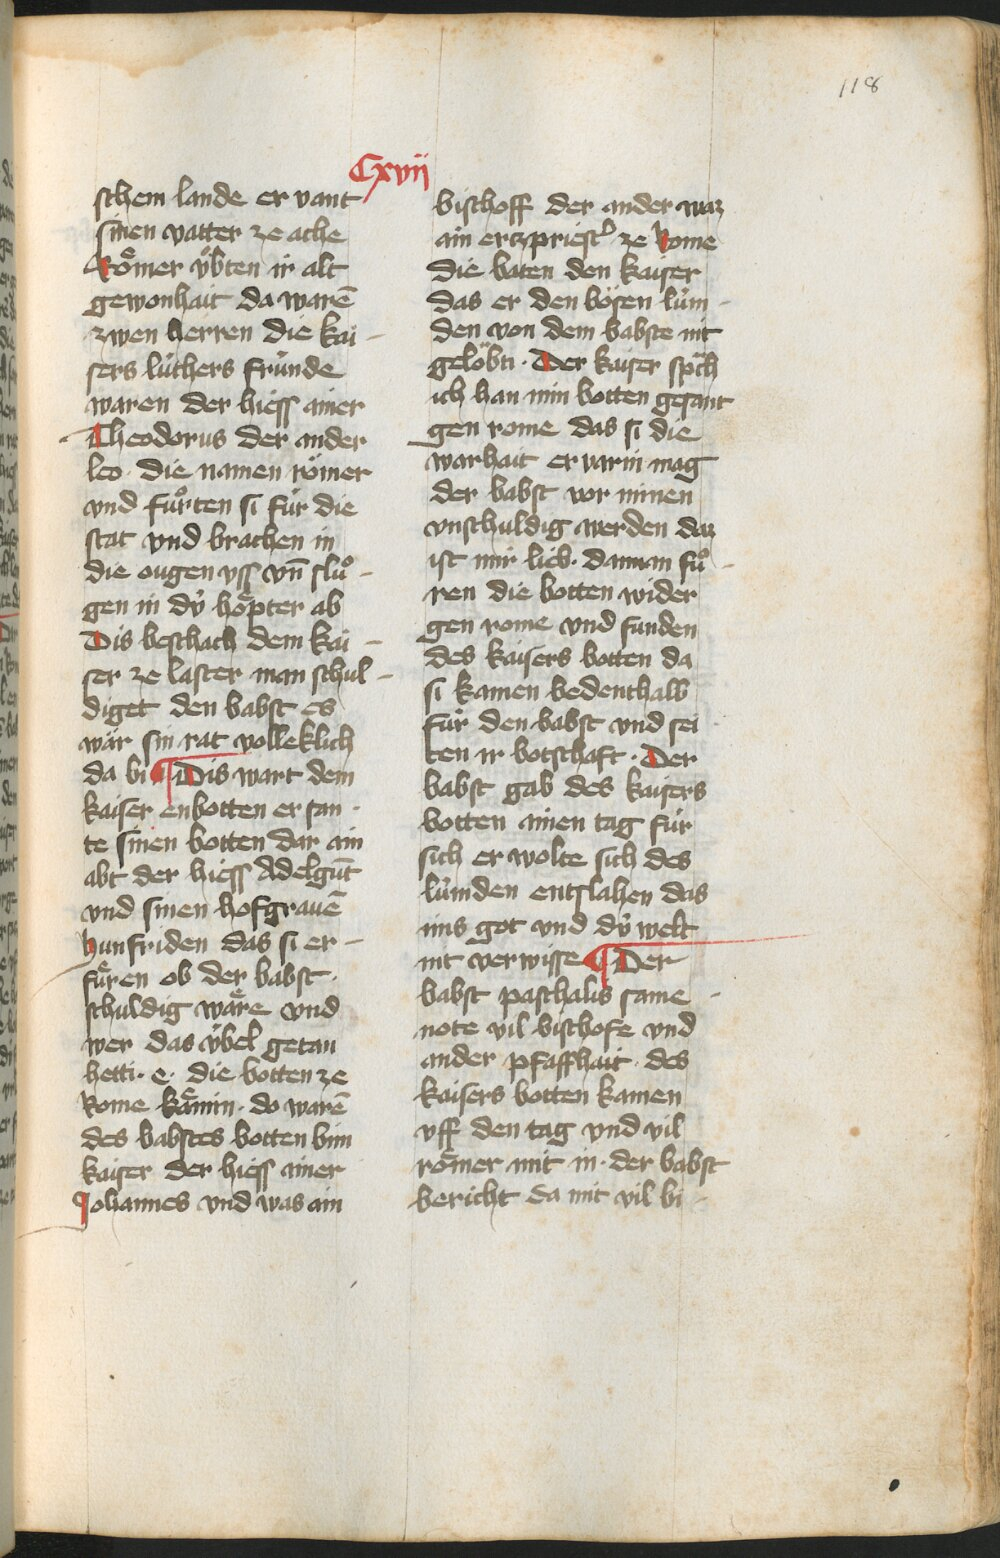 118
Cxvii
schem lande er vant
sinen vatter ze ache
Roͤmer uͤbten ir alt
gewonhait da warē
zwen herren die kai-
sers luthers frunde
waren der hiess ainer
Theodorus der ander
leo. die namen römer
vnd fuͦrten si fúr die
stat vnd brachen in
die ougen vss vn̄ sluͦ-
gen in dÿ hoͤpter ab
Dis beschach dem kai-
ser ze laster man schul-
diget den babst es
wär sin rat volleklich
da bi ¶ Dis wart dem
kaiser enbotten er san-
te sinen botten dar ain
abt der hiess Adelgūt
vnd sinen hofgrauē
hunfriden das si er-
fuͤren ob der babst
schuldig waͤre vnd
wer das úbel getan
hetti. e. die botten ze
Rome kaͤmin. do warē
des babstes botten bim
kaiser der hiess ainer
Johannes vnd was ain
bischoff der ander waz
ain erczpriest' ze Rome
die baten den kaiser
das er den bösen lúm-
den von dem babste nit
gelöbti. Der kaiser spͣch
ich han min botten gesant
gen rome das si die
warhait ervarin mag
der babst vor minen
vnschuldig werden daz
ist mir lieb. daman fuͦ-
ren die botten wider
gen rome vnd funden
des kaisers botten da
si kamen bedenthalb
fúr den babst vnd sei
ten ir botschaft. Der
babst gab des kaisers
botten ainen tag fúr
sich er wolte sich des
lúmden entslahen das
ims got vnd dÿ welt
nit verwisse ¶ Der
babst paschalis same-
note vil bischofe vnd
ander pfaffhait. des
kaisers botten kamen
vff den tag vnd vil
roͤmer mit in. der babst
bericht da mit vil bi-